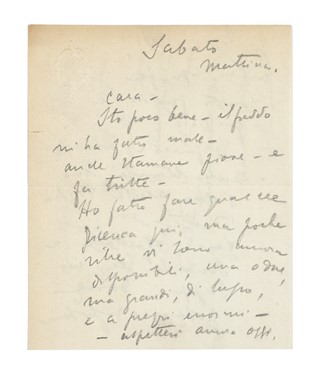 Sabato
mattina.
cara -
Sto poco bene - il freddo
mi ha fatto male -
anche stamane piove - e
fa triste -
Ho fatto fare qualche
qui, ma poche
vi sono ancora
disponibili, una o due,
ma grandi, di lusso,
e a prezzi enormi -
- aspetterò ancora oggi.